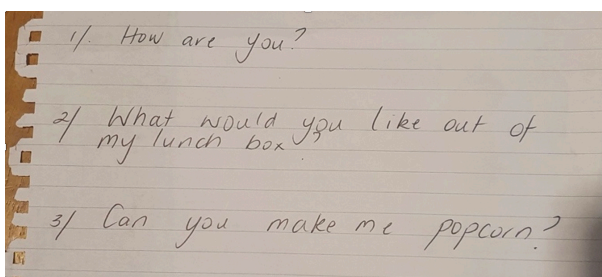 1/. How are you?
2/ What would you like out of
my lunch box?
3/ Can you make me popcorn?